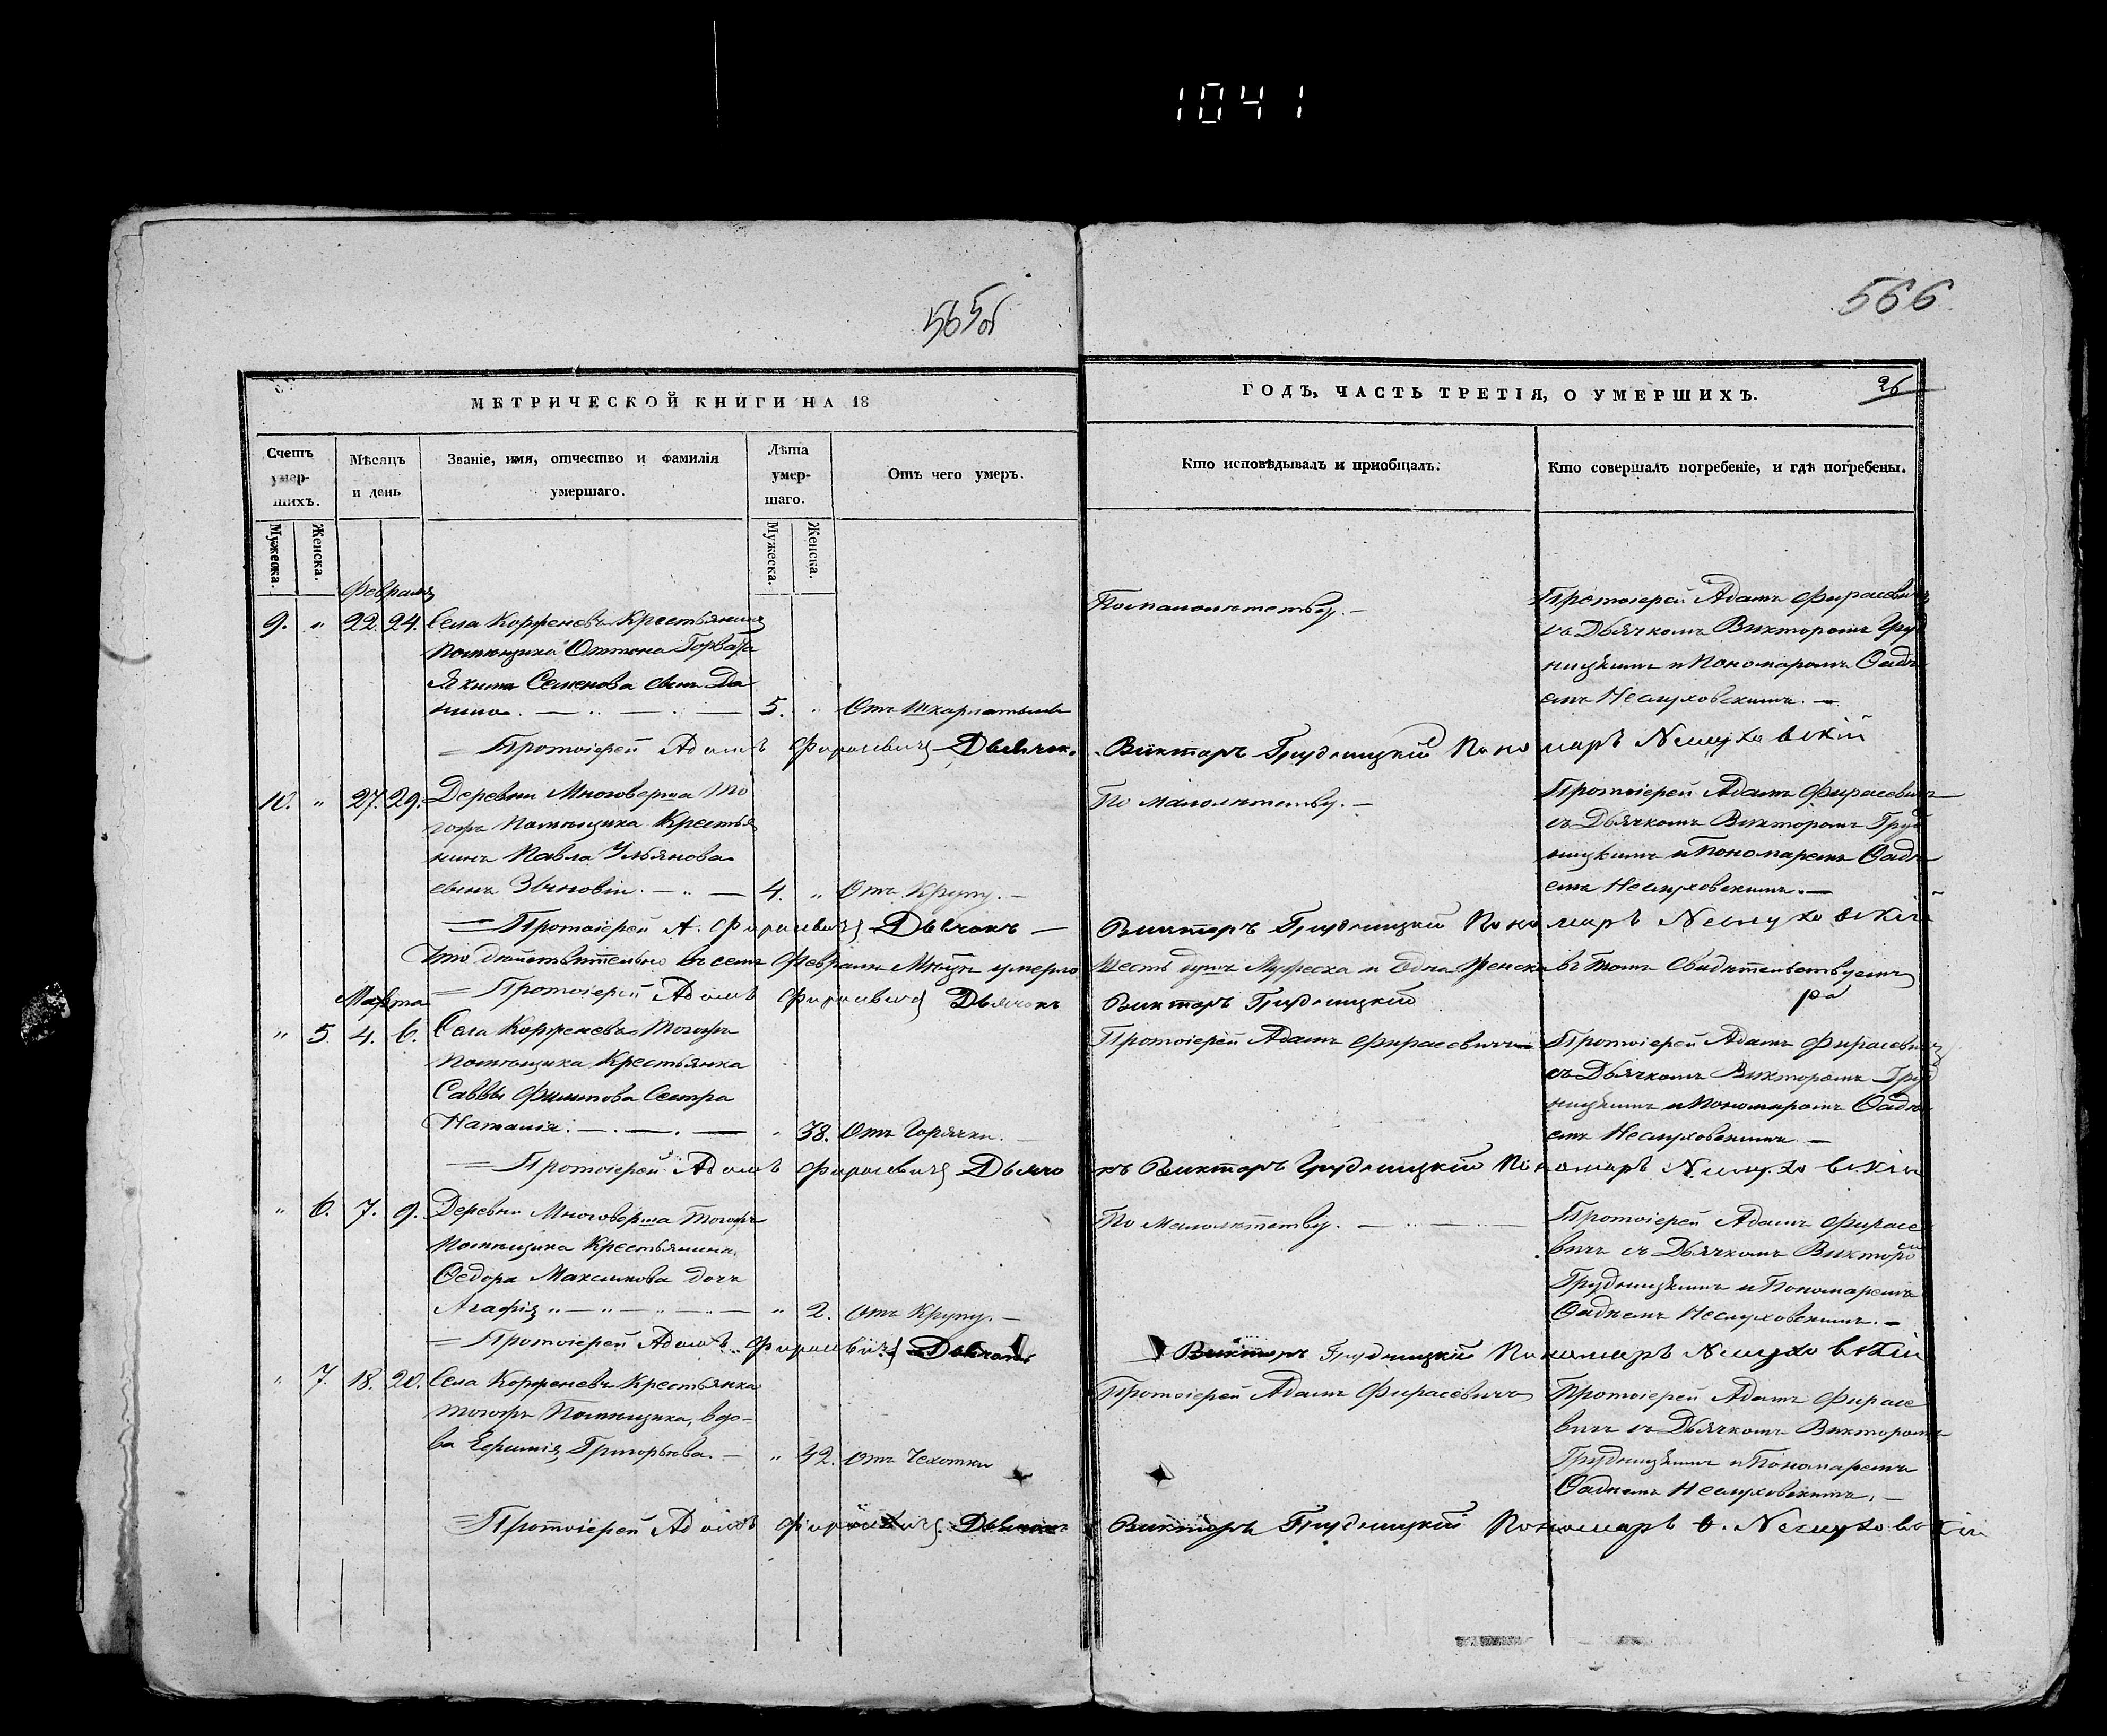 1041
565об
566
МЕТРИЧЕСКОЙ КНИГИ НА 18
ГОДЪ, ЧАСТЬ ТРЕТІЯ, О УМЕРШИХЪ.
26
Счетъ умер-шихъ.
Мѣсяцъ и день
Званіе, имя, отчество и фамилія умершаго.
Лѣта умер-шаго.
Отъ чего умеръ.
Кто исповѣдывалъ и пріобщалъ.
Кто совершалъ погребеніе, и гдѣ погребены.
Мужеска.
Женска.
Мужеска.
Женска.
Февраля
9. " 22. 24. Села Корженевъ Крестьянина
помѣщика Оттона Горвата
Семенова сынъ Да
5. " Отъ Шкарлатины
По малолѣтству. —
Протоіерей Адамъ Фирасевичъ
съ Дьячкомъ Викторомъ Гру
ницкимъ и Пономаремъ Фадѣ
емъ Неслуховскимъ. —
= Протоіерей Адамъ Фирасевичъ Дьячок. Викторъ Грудницкій Пономаръ Неслуховскій
10. " 27. 29. Деревни Многоверша то
гожъ помѣщика Крестья
нинъ Павла Ульянова
сынъ Зѣновій. — 4. " Отъ Крупу. —
По малолѣтству. —
Протоіерей Адамъ Фирасевичъ
съ Дьячкомъ Викторомъ Груд
ницкимъ и Пономаремъ Фадѣ
емъ Неслуховскимъ. —
= Протоіерей А. Фирасевичъ Дьячокъ — Викторъ Грудницкій Пономаръ Неслуховскій
Что дѣйствительно въ семъ Февралѣ Мцѣ умерло Шесть душъ Мужеска и Одна Женска въ томъ Свидѣтельствуемъ
= Протоіерей Адамъ Фирасевичъ Дьячокъ Викторъ Грудницкій
Марта
" 5 4. 6. Села Корженевъ тогожъ
помѣщика Крестьянка
Саввы Филипова Сестра
Наталія. — " 38. Отъ Горячки. —
Протоіерей Адамъ Фирасевичъ —
Протоіерей Адамъ Фирасевичъ
съ Дьячкомъ Викторомъ Груд
ницкимъ и Пономаремъ Фадѣ
емъ Неслуховскимъ. —
= Протоіерей Адамъ Фирасевичъ Дьячокъ Викторъ Грудницкій Пономаръ Неслуховскій
" 6. 7. 9. Деревни Многоверша тогожъ
помѣщика Крестьянина
Федора Максимова дочь
Агафія " — " 2. Отъ Крупу. —
По малолѣтству. —
Протоіерей Адамъ Фирасе
вичъ съ Дьячкомъ Викторомъ
Грудницкимъ и Пономаремъ
Фадѣемъ Неслуховскимъ. —
= Протоіерей Адамъ Фирасевичъ Дьячокъ Викторъ Грудницкій Пономаръ Неслуховскій
" 7. 18. 20. Села Корженевъ Крестьянка
тогожъ Помѣщика, вдо-
ва Григорьева. — " 42. Отъ Чехотки
Протоіерей Адамъ Фирасевичъ
Протоіерей Адамъ Фирасе
вичъ съ Дьячкомъ Викторомъ
Грудницкимъ и Пономаремъ
Фадѣемъ Неслуховскимъ. —
= Протоіерей Адамъ Фирасевичъ Дьячокъ Викторъ Грудницкій Пономаръ Ф. Неслуховскій